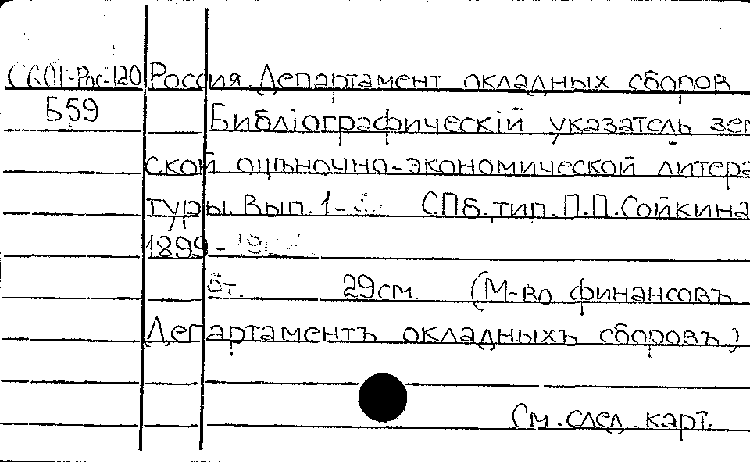 С601-Рос-120 Россия. Департамент окладных сборов
Б59 Библіографическій указатель зем
ской оцѣночно-экономической литера
туры. Вып. 1- СПб. тип. П.П.Сойкина
1899-
т. 29см (М-во финансовъ
Департаментъ окладныхъ сборовъ)
См. след. карт.